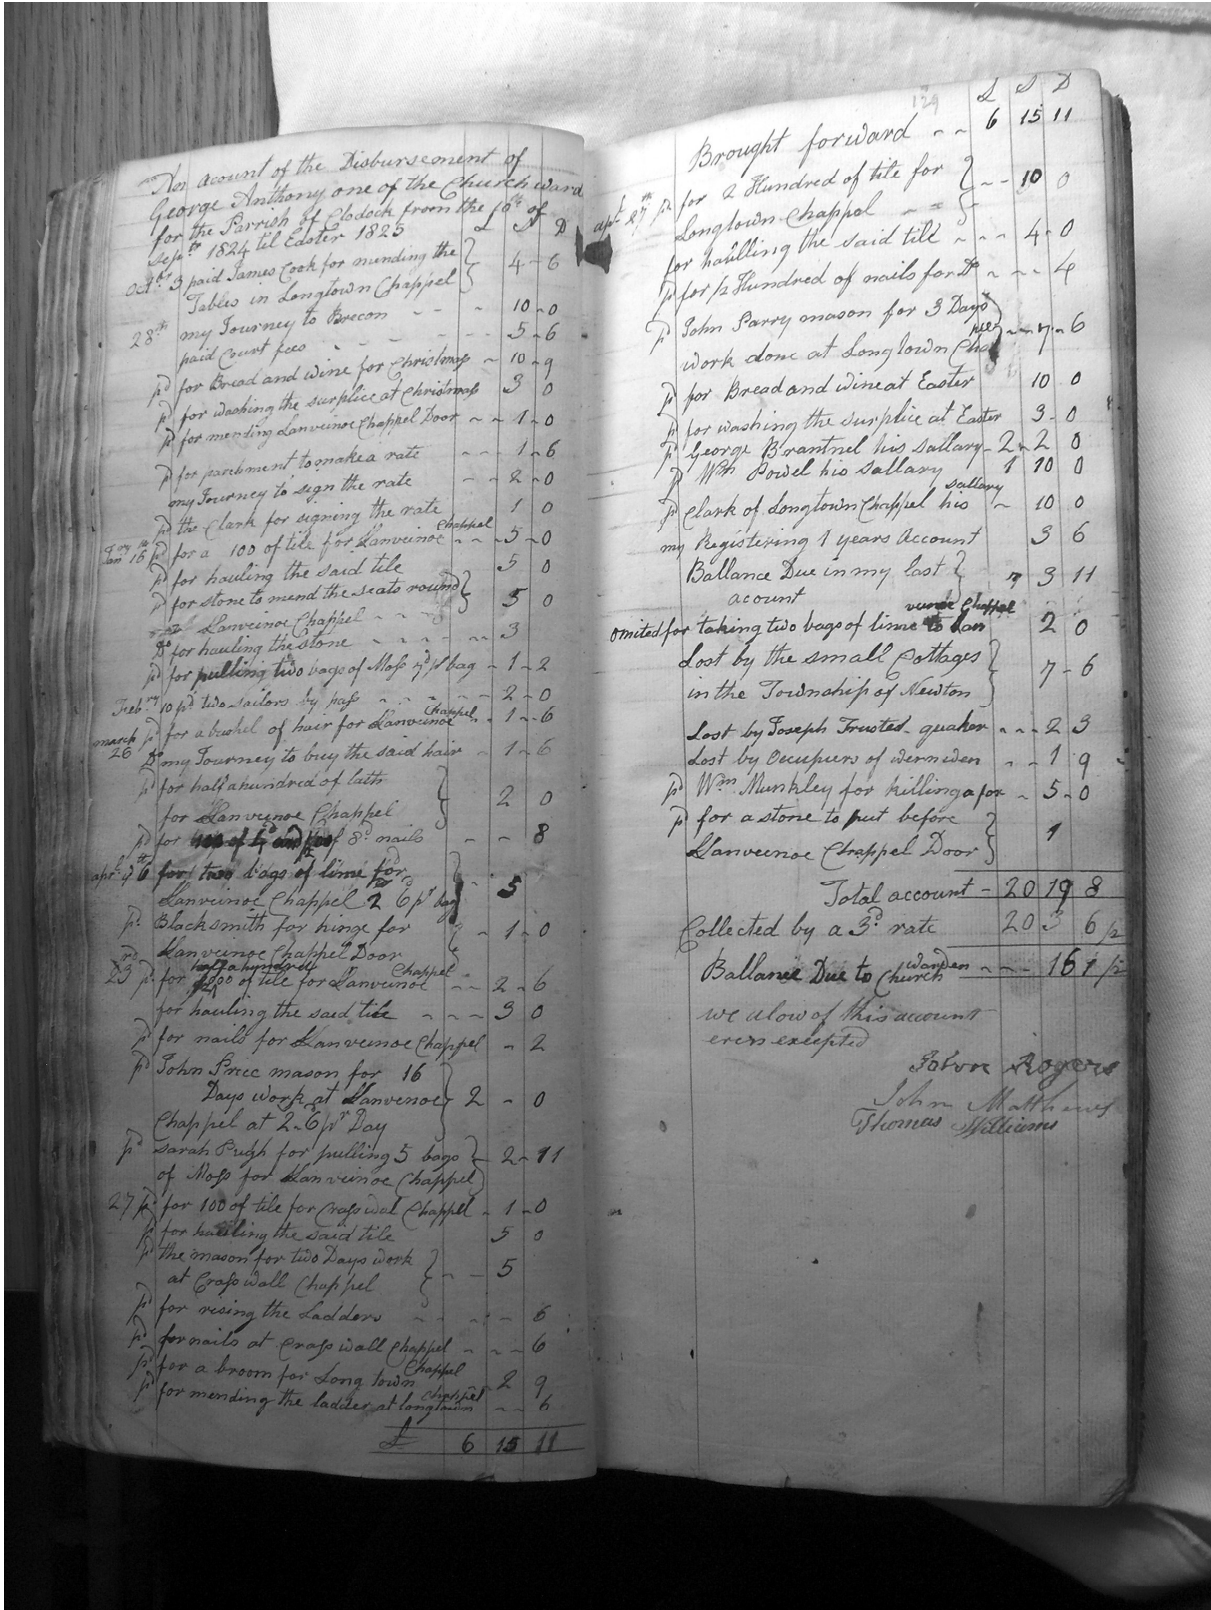 An acount of the Disbursement of
George Anthony one of the Church ward
for the Parrish of Clodock from the 10th of
Sepr 1824 til Easter 1825 £ S D
Octbr 3 paid James Cook for mending the
Tables in Longtown Chappel 4 - 6
28th my Journey to Brecon - - 10 - 0
paid Court fees - - - 5 - 6
pd for Bread and wine for Christmass - 10 - 9
pd for washing the surplice at Christmass 3 0
pd for mending Lanveinoe Chappel Door - - 1 - 0
pd for parchment to make a rate - - - 1 - 6
my Journey to sign the rate - - 2 - 0
pd the Clark for signing the rate 1 0
Jany 16th pd for a 100 of tile for Lanveinoe Chappel - - - 5 - 0
pd for hauling the said tile 5 0
pd for stone to mend the seats round
Lanveinoe Chappel - - - 5 0
Do for hauling the stone - - - - - 3
pd for pulling two bags of Moss 7d pr bag - 1 - 2
Febry 10 pd two sailors by pass - - - - - 2 - 0
march pd for a bushel of hair for Lanveinoe Chappel - 1 - 6
26 Do my Journey to buy the said hair - 1 - 6
pd for half a hundred of lath
for Lanveinoe Chappel 2 0
pd for of 8d nails - - 8
aprl 4th for two bags of lime for
Lanveinoe Chappel 2 6 pr bag - 5
pd Blacksmith for hinge for
Lanveinoe Chappel Door - 1 - 0
23rd pd for half a hundred of tile for Lanveinoe Chappel - - - 2 - 6
for hauling the said tile - - - 3 0
pd for nails for Lanveinoe Chappel - 2
pd John Pree mason for 16
Days work at Lanveinoe 2 - 0
Chappel at 2 - 6 pr Day
pd Sarah Pugh for pulling 5 bags
of Moss for Lanveinoe Chappel - 2 - 11
27 pd for 100 of tile for Crasswal Chappel - 1 - 0
pd for hauling the said tile 5 0
pd the mason for two Days work
at Crasswall Chappel - - 5
pd for rising the Ladders - - - - 6
pd for nails at Crasswall Chappel - - - 6
pd for a broom for Longtown Chappel - 2 9
pd for mending the ladder at longtown Chappel - - 6
£ 6 15 11
129
£ S D
Brought forward - - 6 15 11
aprl 27th pd for 2 Hundred of tile for
Longtown Chappel - - 10 0
for haulling the said till - - - 4 - 0
pd for 1/2 Hundred of nails for Do - - - 4
pd John Parry mason for 3 Days
work done at Longtown Chappel - - 7 - 6
pd for Bread and wine at Easter 10 0
pd for washing the surplice at Easter 3 - 0
pd George Brantnel his sallary - 2 - 2 0
pd Wm Powel his sallary 1 10 0
pd Clark of Longtown Chappel his sallary - 10 0
my Registering 1 years Account 3 6
Ballance Due in my last
acount 7 3 11
omited for taking two bags of lime to Lanveinoe Chappel 2 0
Lost by the small Cottages
in the Township of Newton 7 - 6
Lost by Joseph Trusted - quaker - - - 2 3
Lost by Occupiers of wernwen - - 1 9
pd Wm Munkley for killing a fox - 5 - 0
pd for a stone to put before
Lanveinoe Chappel Door 1
Total account - 20 19 8
Collected by a 3d rate 20 3 6 1/2
Ballance Due to Church warden - - - 16 1 1/2
we alow of this account
erers excepted
John Rogers
John Matthews
Thomas Williams